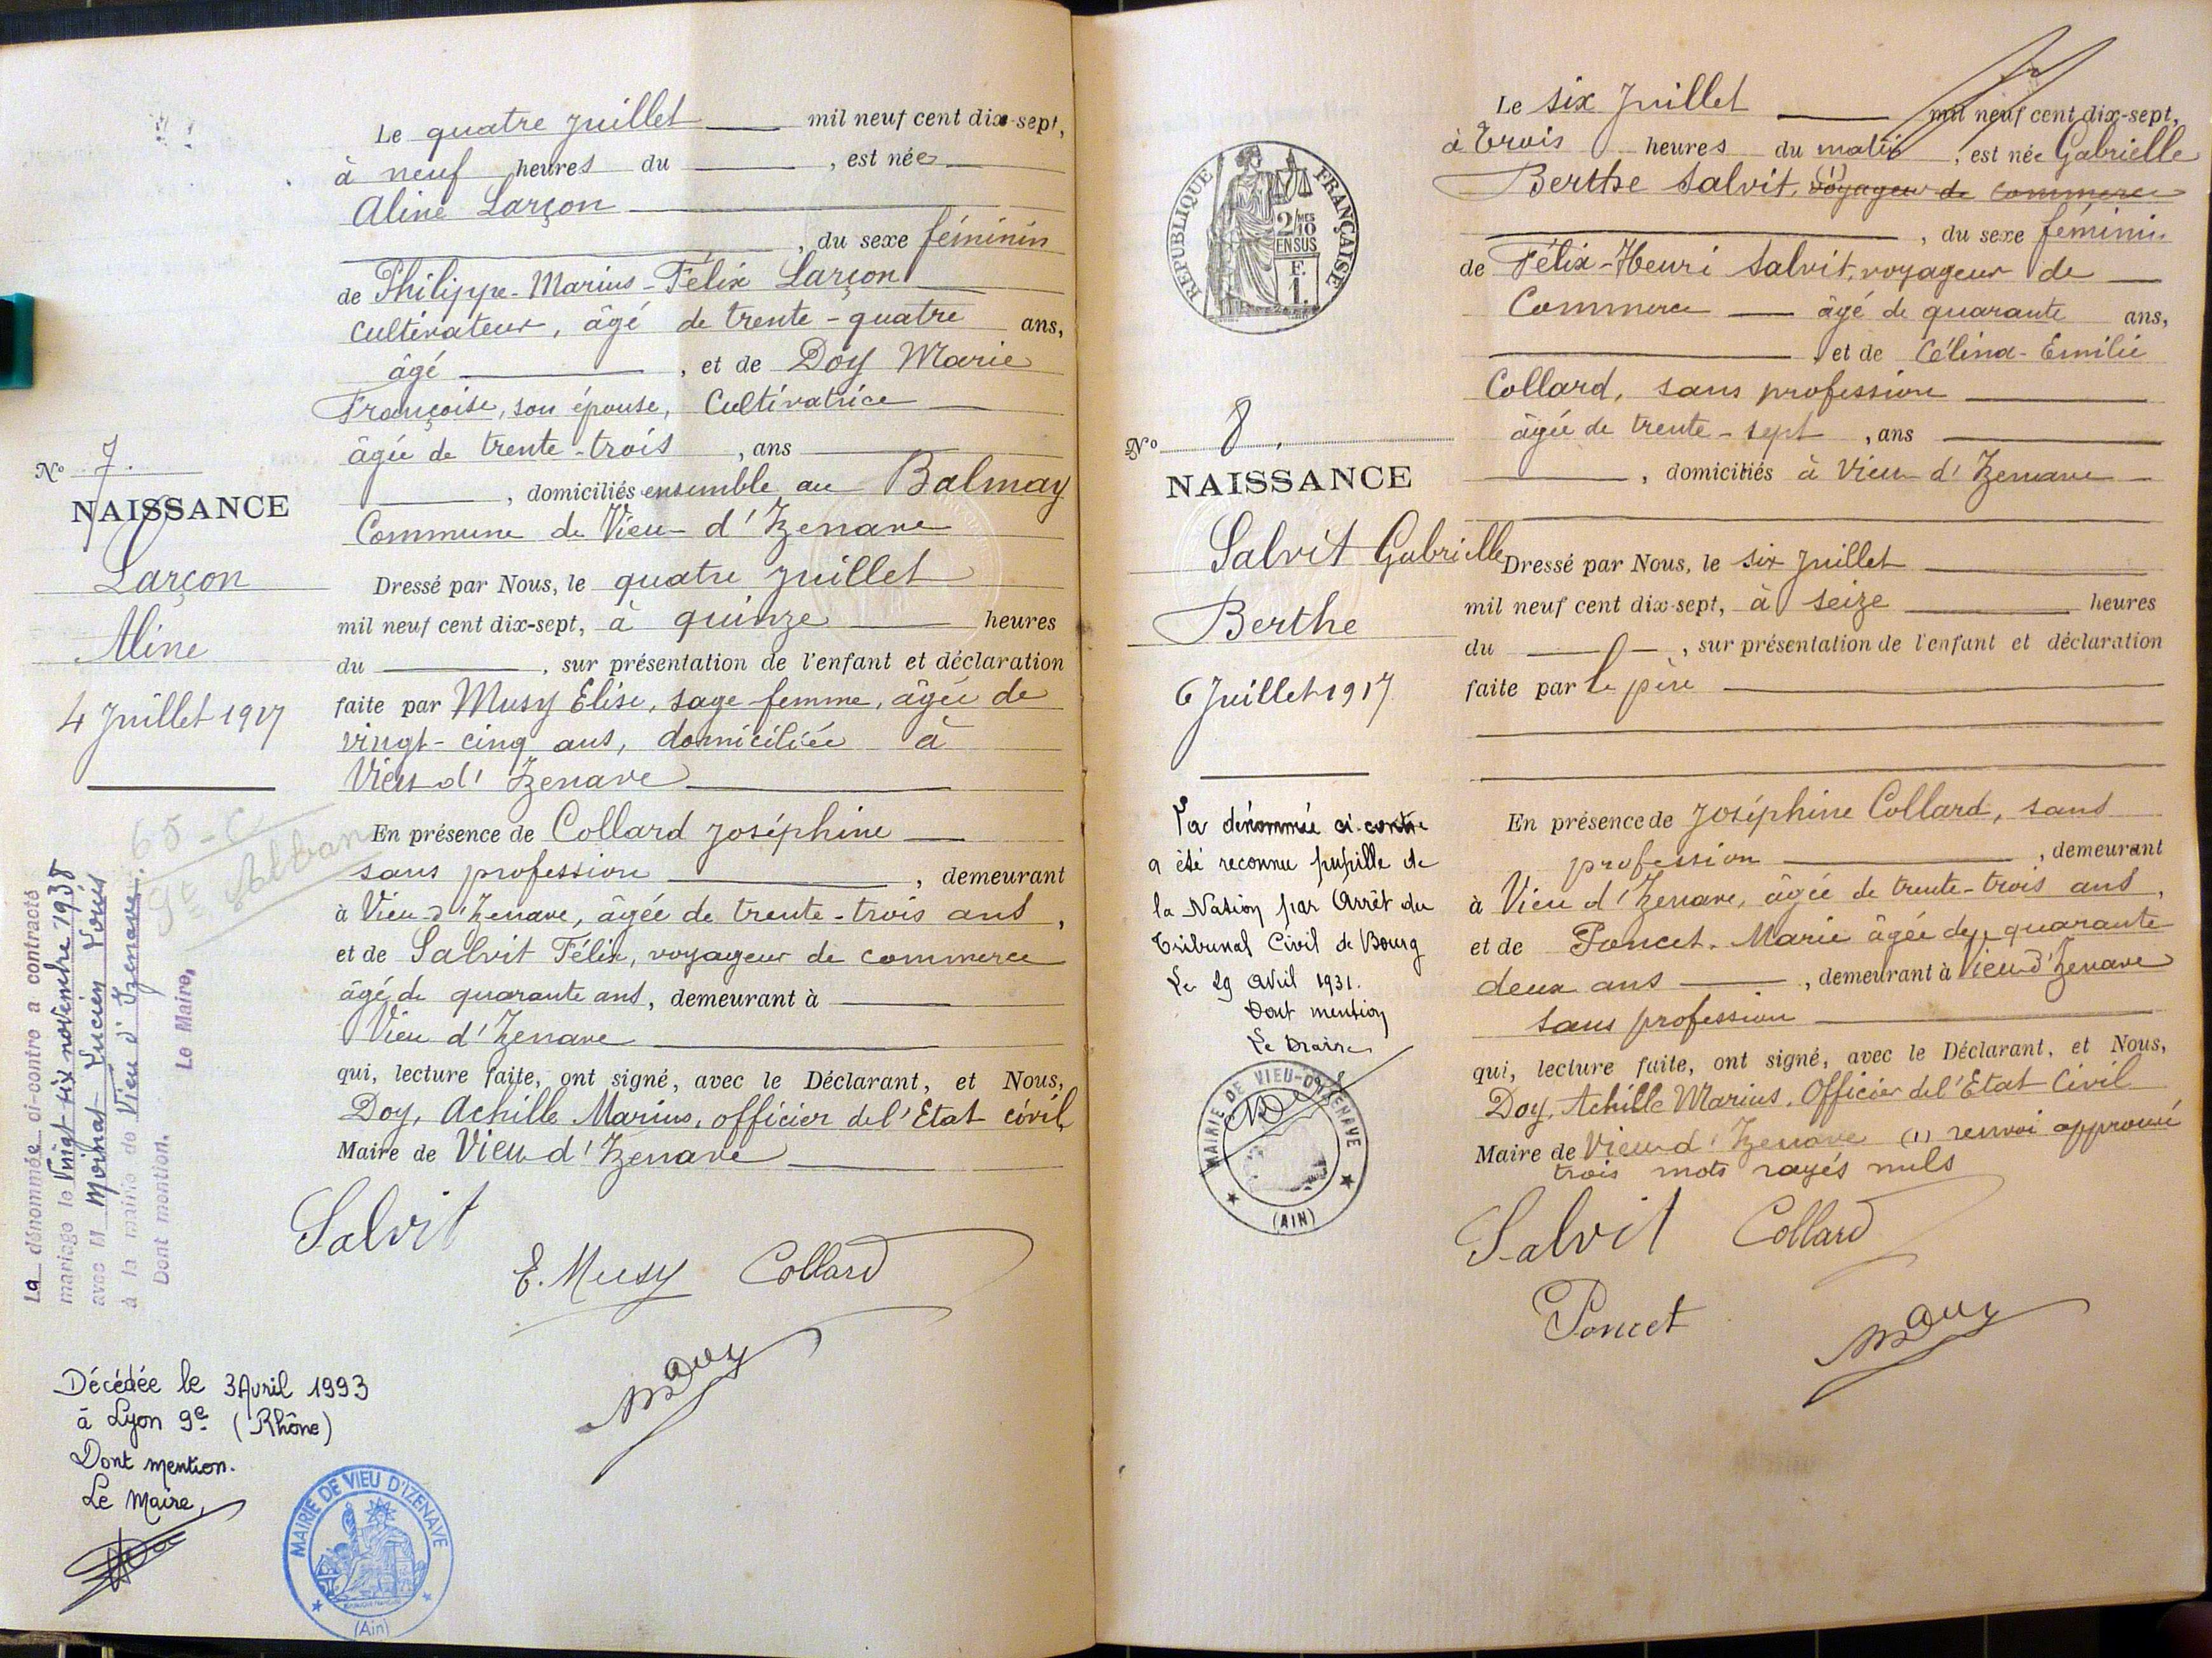 Le quatre Juillet mil neuf cent dix-sept,
à neuf heures du , est née
Aline Larçon
, du sexe féminin
de Philippe-Marius-Félix Larçon
cultivateur, âgé de trente-quatre ans,
âgé , et de Doy Marie
Françoise, son épouse, Cultivatrice
âgée de trente-trois , ans
, domiciliés ensemble au Balmay
Commune de Vieu-d'Izenave
Dressé par Nous, le quatre Juillet
mil neuf cent dix-sept, à quinze heures
du , sur présentation de l'enfant et déclaration
faite par Musy Elise, sage femme, âgée de
vingt-cinq ans, domiciliée à
Vieu d'Izenave
En présence de Collard Joséphine
sans profession , demeurant
à Vieu-d'Izenave, âgée de trente-trois ans,
et de Salvit Félix, voyageur de commerce
âgé de quarante ans, demeurant à
Vieu d'Izenave
qui, lecture faite, ont signé, avec le Déclarant, et Nous,
Doy, Achille Marius, officier de l'Etat civil,
Maire de Vieu d'Izenave
Salvit
E. Musy Collard
N° 7.
NAISSANCE
Larçon
Aline
4 Juillet 1917
65-C
St Alban
La dénommée ci-contre a contracté
mariage le Vingt-six novembre 1938
avec M Moinat Lucien Louis
à la mairie de Vieu d'Izenave.
Dont mention.
Le Maire,
Décédée le 3 Avril 1993
à Lyon 9e (Rhône)
Dont mention.
Le Maire,
MAIRIE DE VIEU D'IZENAVE
(Ain)
REPUBLIQUE FRANÇAISE
2/10 MES
EN SUS
F.
1.
N° 8.
NAISSANCE
Salvit Gabrielle
Berthe
6 Juillet 1917
La dénommée ci-contre
a été reconnue pupille de
la Nation par Arrêt du
Tribunal Civil de Bourg
Le 29 avril 1931.
Dont mention
Le Maire
MAIRIE DE VIEU-D'IZENAVE
(AIN)
Le six Juillet mil neuf cent dix-sept,
à trois heures du matin , est née Gabrielle
Berthe Salvit, (1) voyageur de commerce
, du sexe féminin
de Félix-Henri Salvit, voyageur de
Commerce âgé de quarante ans,
, et de Célina-Emilie
Collard, sans profession
âgée de trente-sept , ans
, domiciliés à Vieu d'Izenave
Dressé par Nous, le six Juillet
mil neuf cent dix-sept, à seize heures
du , sur présentation de l'enfant et déclaration
faite par le père
En présence de Joséphine Collard, sans
profession , demeurant
à Vieu d'Izenave, âgée de trente-trois ans,
et de Poncet, Marie âgée de quarante
deux ans , demeurant à Vieu d'Izenave
sans profession
qui, lecture faite, ont signé, avec le Déclarant, et Nous,
Doy, Achille Marius, Officier de l'Etat Civil
Maire de Vieu d'Izenave (1) renvoi approuvé
trois mots rayés nuls
Salvit Collard
Poncet